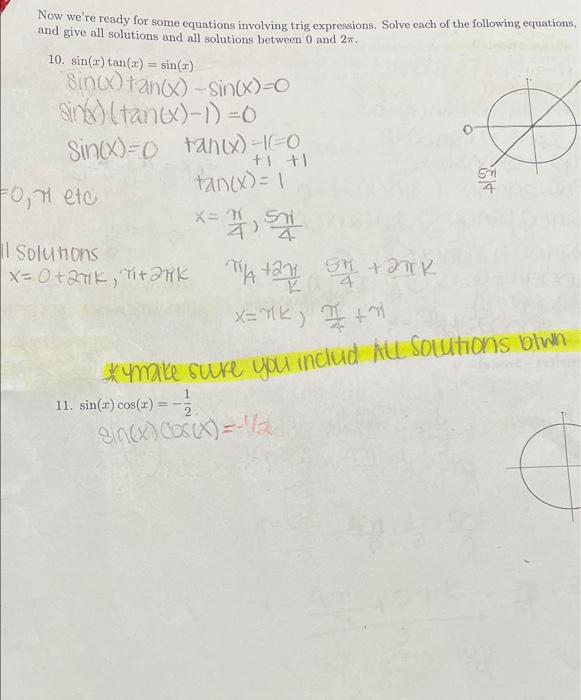 Now we're ready for some equations involving trig expressions. Solve each of the following equations,
and give all solutions and all solutions between 0 and 2π.
10. sin(x) tan(x) = sin(x)
sin(x)tan(x) - sin(x)=0
sin(x)(tan(x)-1) = 0
sin(x)=0 tan(x)-1=0
+1 +1
tan(x)=1
=0, π etc
x= π/4, 5π/4
0
5π/4
ll solutions
x= 0+2πk, π+2πk π/4 + 2π/k 5π/4 + 2πk
x=πk, π/4 + π
make sure you includ ALL solutions btwn
11. sin(x) cos(x) = -1/2.
sin(x)cos(x)=-1/2